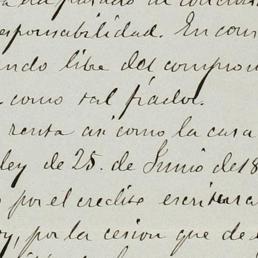 esponsabilidad. En cons
ando libre del compro
como tal fiador.
renta asi como la casa
ley de 25. de Junio de 18
por el credito escritura
y, por la cesion que de